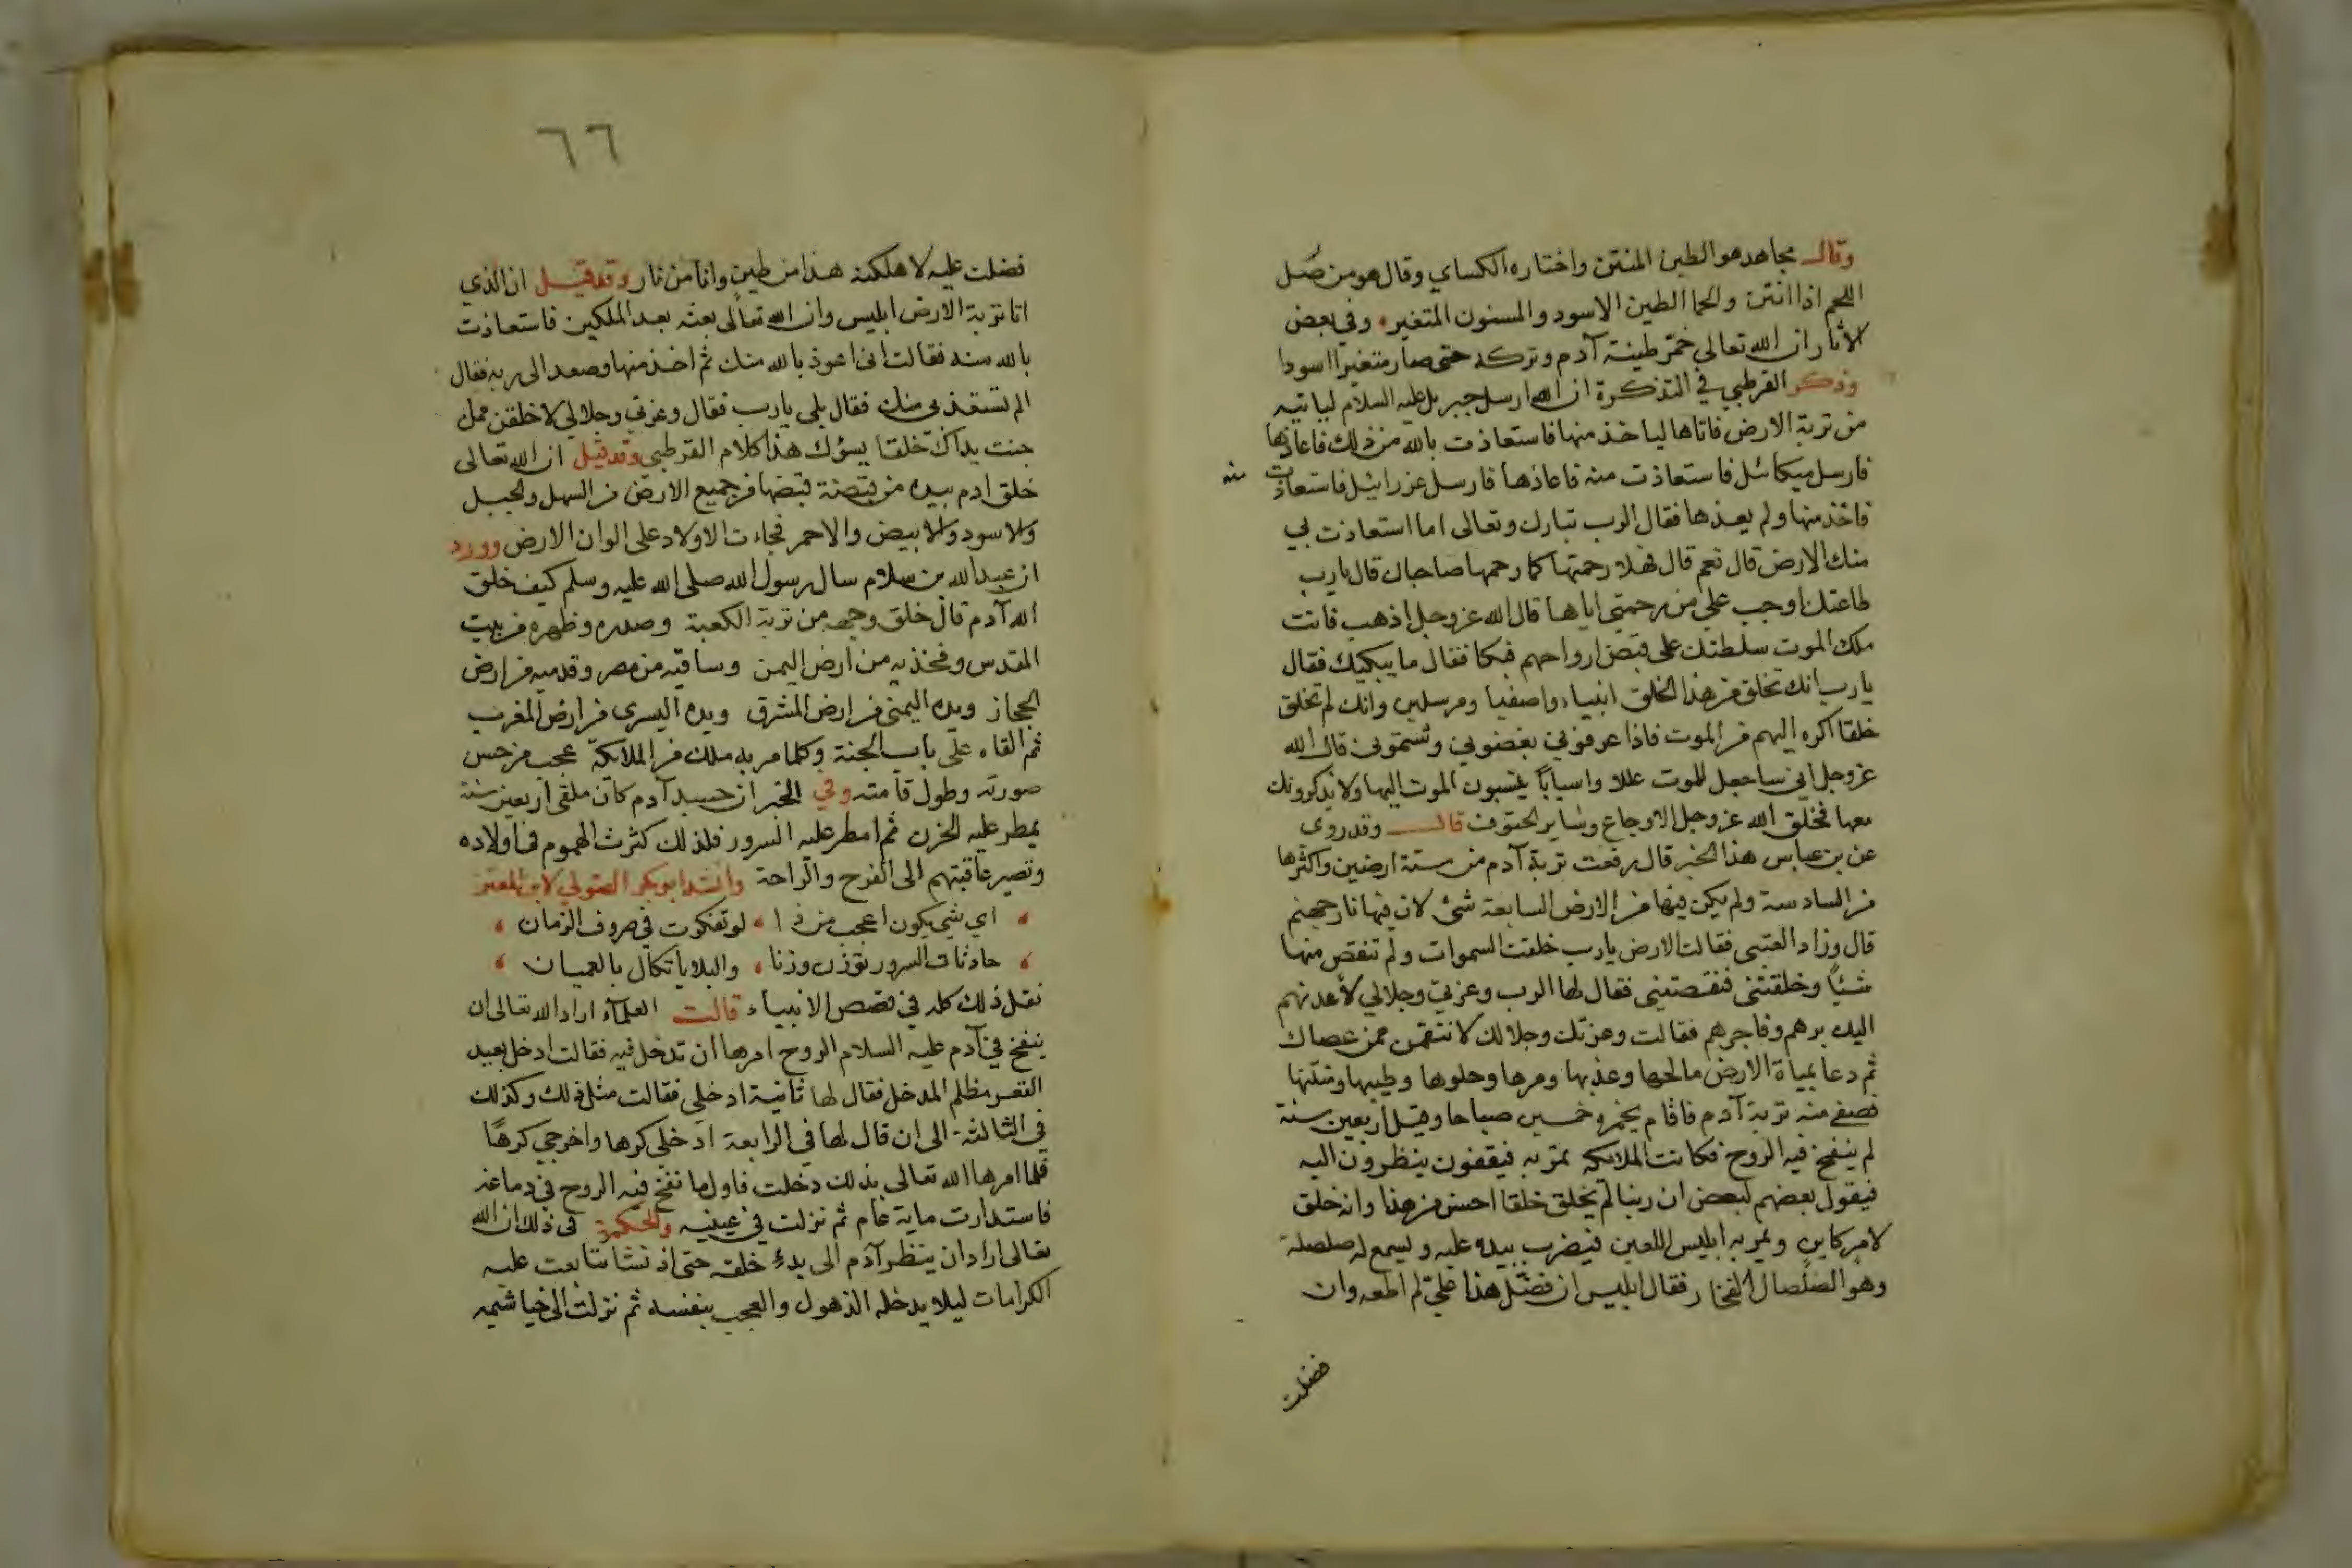 وقال مجاهد هو الطين المنتن واختاره الكساي وقال هو من صَل
اللحم اذا انتن والحما الطين الاسود والمسنون المتغير وفي بعض
الاثار ان الله تعالى خمّر طينة آدم وتركه حتى صار متغيرا اسودا
وذكر القرطبي في التذكرة ان الله ارسل جبريل عليه السلام لياتيه
من تربة الارض فاتاها لياخذ منها فاستعاذت بالله من ذلك فاعاذها
فارسل ميكائل فاستعاذت منه فاعاذها فارسل عزرائيل فاستعاذت منه
فاخذ منها ولم يعذها فقال الرب تبارك وتعالى اما استعاذت بي
منك الارض قال نعم قال فهلا رحمتها كما رحمها صاحباك قال يا رب
طاعتك اوجب علي من رحمتي اياها قال الله عز وجل اذهب فانت
ملك الموت سلطتك على قبض ارواحهم فبكا فقال ما يبكيك فقال
يا رب انك تخلق من هذا الخلق انبياء واصفيا ومرسلين وانك لم تخلق
خلقا اكره اليهم من الموت فاذا عرفوني بغضوني وشتموني قال الله
عز وجل اني ساجعل للموت عللا واسبابًا ينسبون الموت اليها ولا يذكرونك
معها فخلق الله عز وجل الاوجاع وساير الحتوف قال وقد روى
عن بن عباس هذا الخبر قال رفعت تربة آدم من ستة ارضين واكثرها
من السادسة ولم يكن فيها من الارض السابعة شئ لان فيها نار جهنم
قال وزاد العتبى فقالت الارض يا رب خلقت السموات ولم تنقص منها
شيًا وخلقتنى فنقصتينى فقال لها الرب وعزتي وجلالي لأعدنهم
اليك برهم وفاجرهم فقالت وعزتك وجلالك لانتقمن ممن عصاك
ثم دعا بمياة الارض مالحها وعذبها ومرها وحلوها وطيبها ونتنها
فصفى منه تربة آدم فاقام يخمره خمسين صباحا وقيل اربعين سنة
لم ينفخ فيه الروح فكانت الملائكه تمر به فيقفون ينظرون اليه
فيقول بعضهم لبعض ان ربنا لم يخلق خلقا احسن من هذا وانه خلق
لامر كاين ويمر به ابليس اللعين فيضرب بيده عليه ويسمع له صلصلة
وهو الصلصال الفخار فقال ابليس ان فضّل هذا عليّ لم اطعه وان
فضلت
٦٦
فضلت عليه لاهلكنه هذا من طين وانا من نار وقد قيل ان الذي
اتا بتربة الارض ابليس وان الله تعالى بعثه بعد الملكين فاستعاذت
بالله منه فقالت انى اعوذ بالله منك ثم اخذ منها وصعد الى ربه فقال
الم تستعذ بى منك فقال بلى يا رب فقال وعزتي وجلالي لاخلقن مما
جنت يداك خلقا يسؤك هذا كلام القرطبي وقد قيل ان الله تعالى
خلق ادم بيده من قبضة قبضها من جميع الارض من السهل والجبل
والاسود والابيض والاحمر فجاءت الاولاد على الوان الارض وورد
ان عبد الله بن سلام سال رسول الله صلى الله عليه وسلم كيف خلق
الله آدم قال خلق وجهه من تربة الكعبة وصدره وظهره من بيت
المقدس وفخذيه من ارض اليمن وساقيه من مصر وقدميه من ارض
الحجاز ويده اليمنى من ارض المشرق ويده اليسرى من ارض المغرب
ثم القاه على باب الجنة وكلما مر به ملك من الملائكة عجب من حسن
صورته وطول قامته وفي الخبر ان جسد آدم كان ملقى اربعين سنة
يمطر عليه الحزن ثم امطر عليه السرور فلذلك كثرت الهموم في اولاده
وتصير عاقبتهم الى الفرح والراحة وانشد ابو بكر الصولي لابن المعتز
اي شي يكون اعجب من ذا لو تفكرت في صروف الزمان
حادثات السرور توزن وزنا والبلايا تكال بالعيان
نقل ذلك كله في قصص الانبياء قالت العلماء اراد الله تعالى ان
ينفخ في آدم عليه السلام الروح امرها ان تدخل فيه فقالت ادخل بعيد
القعر مظلم المدخل فقال لها ثانية ادخلي فقالت مثل ذلك وكذلك
في الثالثة الى ان قال لها في الرابعة ادخلى كرها واخرجي كرهًا
فلما امرها الله تعالى بذلك دخلت فاول ما نفخ فيه الروح في دماغه
فاستدارت ماية عام ثم نزلت في عينيه والحكمة في ذلك ان الله
تعالى اراد ان ينظر آدم الى بدءِ خلقه حتى اذ نشا تتابعت عليه
الكرامات ليلا يدخله الذهول والعجب بنفسه ثم نزلت الى خياشيمه